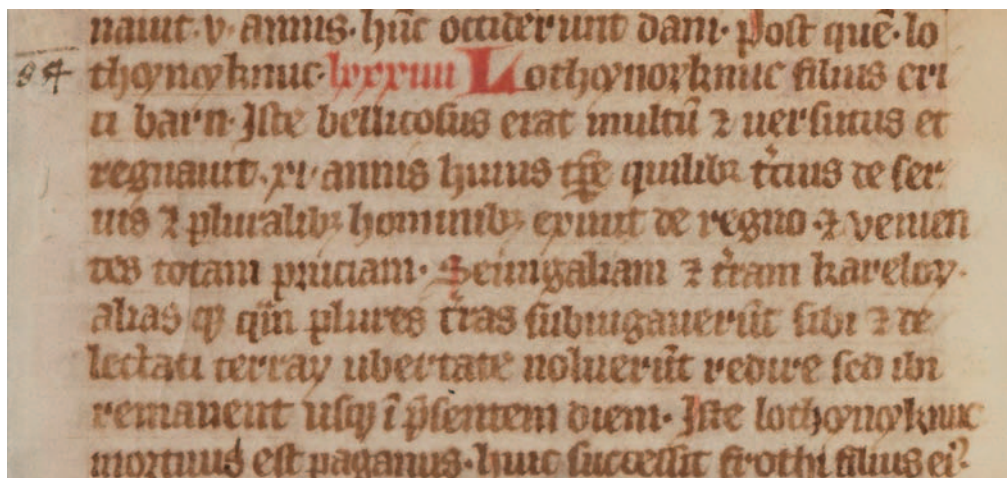 nauit· v· annis· hūc occiderunt dani· Post quē· lo
84
thoynoyknuc· lxxxiiii Lothoynorknuc filius eri
ci barn· Iste bellicosus erat multū ⁊ uersutus et
regnauit· xi· annis huius tꝑe quilibꝫ t̄cius de ser
uis ⁊ pluralibꝫ hominibꝫ exiuit de regno· ⁊ venien
tes totam pruciam· Semigaliam ⁊ t̄ram kareloꝝ·
alias qꝫ qm̄ plures t̄ras subiugauerūt sibi ⁊ de
lectati terraꝝ ubertate noluerūt redire sed ibi
remanent usqꝫ ī p̄sentem diem· Iste lothoynoyknuc
mortuus est paganus· huic successit frothi filius eiꝰ·